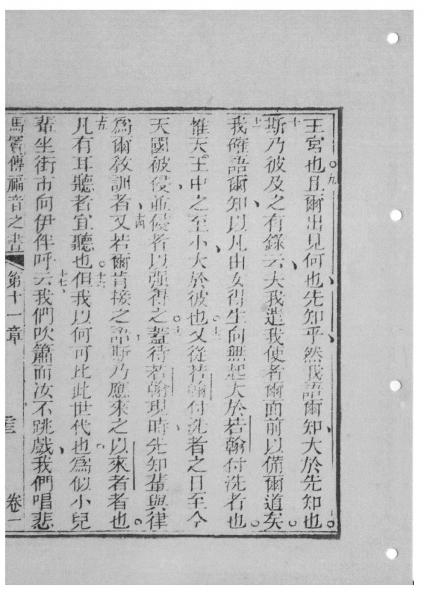 王宮也且爾出見何也先知乎然我語爾知大於先知也
九
斯乃彼及之有錄云夫我遣我使者爾面前以備爾道矣
十
我確語爾知以凡由女得生向無起大於若翰付洗者也
十一
惟天王中之至小大於彼也又從若翰付洗者之日至今
十二
天國被侵並侵者以強得之蓋待若翰現時先知輩與律
十三
為爾教訓者又若爾肯接之語斯乃應來之以來者者也
十四
凡有耳聽者宜聽也但我以何可比此世代也為似小兒
十五
十六
輩坐街市向伊伴呼云我們吹簫而汝不跳戲我們唱悲
十七
馬竇傳福音之書 第十一章 卷一